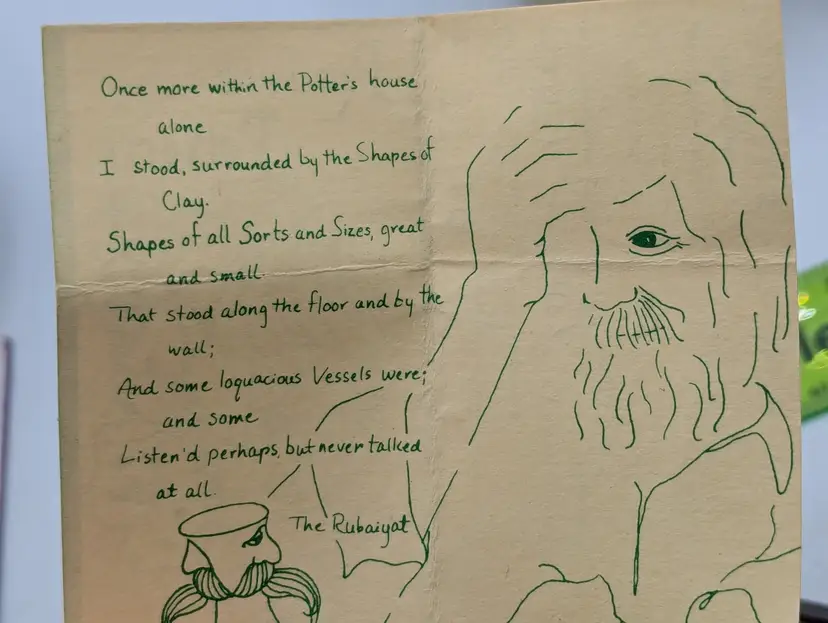 Once more within the Potter's house
alone
I stood, surrounded by the Shapes of
Clay.
Shapes of all Sorts and Sizes, great
and small.
That stood along the floor and by the
wall;
And some loquacious Vessels were;
and some
Listen'd perhaps, but never talked
at all.
The Rubaiyat